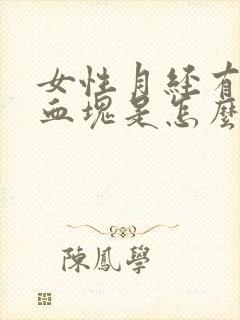 女性月经有
血塊是怎麼
陳鳳學